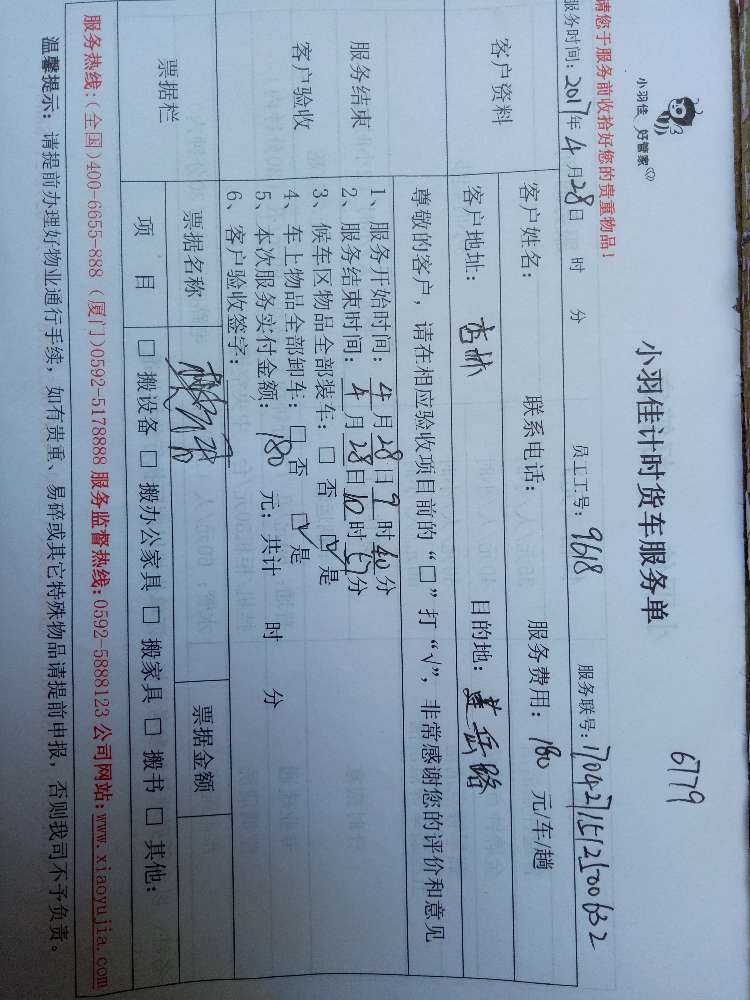 小羽佳 好管家
小羽佳计时货车服务单
6779
请您于服务前收拾好您的贵重物品!
服务时间: 2017年 4月28日 时 分 员工工号: 9618 服务联号: 1704271512500632
客户资料
客户姓名: 联系电话: 服务费用: 180 元/车/趟
客户地址: 杏林 目的地:
服务结束
客户验收
尊敬的客户,请在相应验收项目前的“□”打“√”,非常感谢您的评价和意见
1、服务开始时间: 4月28日9时40分
2、服务结束时间: 4月28日10时 分
3、候车区物品全部装车: □ 否 ☑ 是
4、车上物品全部卸车: □ 否 ☑ 是
5、本次服务实付金额: 180 元; 共计 时 分
6、客户验收签字:
票据栏
票据名称 票据金额
项 目 □ 搬设备 □ 搬办公家具 □ 搬家具 □ 搬书 □ 其他:
服务热线:(全国)400-6655-888 (厦门)0592-5178888 服务监督热线:0592-5888123 公司网站:www.xiaoyujia.com
温馨提示: 请提前办理好物业通行手续,如有贵重、易碎或其它特殊物品请提前申报,否则我司不予负责。